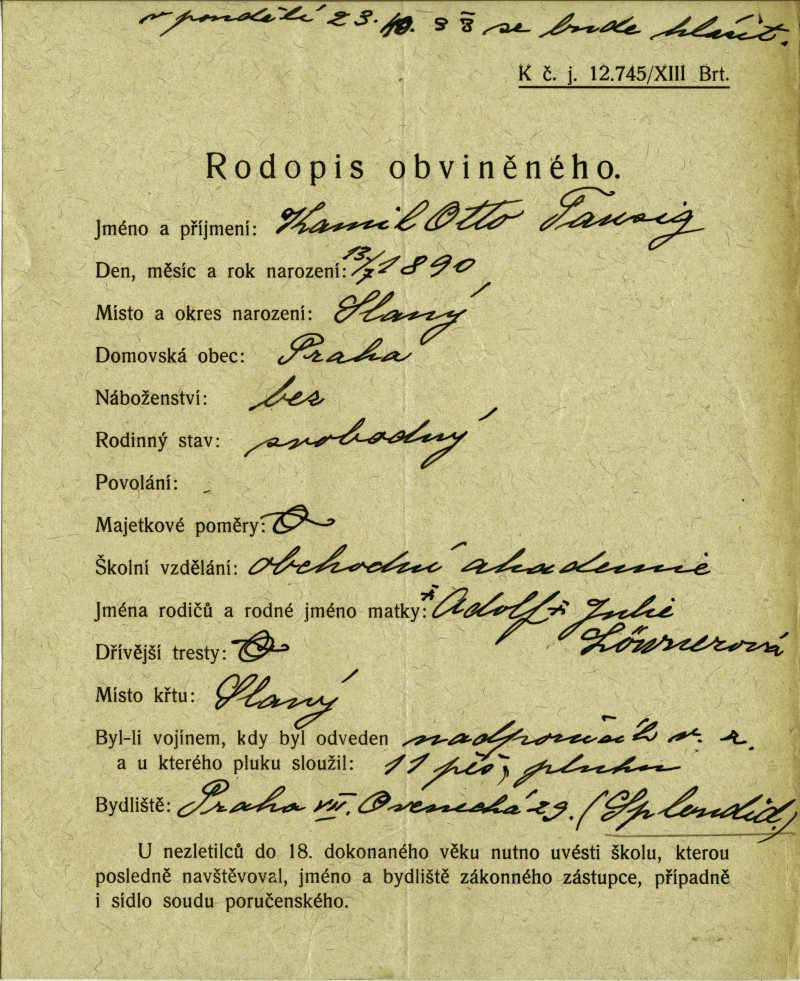 v pondělí 23. 10. 33 se bude hlásit.
K č. j. 12.745/XIII Brt.
Rodopis obviněného.
Jméno a příjmení: Kamil Otto Taussig
Den, měsíc a rok narození: 13/7 1890
Místo a okres narození: Slaný
Domovská obec: Praha
Náboženství: bez
Rodinný stav: svobodný
Povolání: -
Majetkové poměry: O
Školní vzdělání: obchodní akademie
Jména rodičů a rodné jméno matky: Adolf Julie
Löwnerová
Dřívější tresty: O
Místo křtu: Slaný
Byl-li vojínem, kdy byl odveden nadporučík v. z.
a u kterého pluku sloužil: 11 pěš. pluku
Bydliště: Praha VII. Ovenecká 29. (Splendid)
U nezletilců do 18. dokonaného věku nutno uvésti školu, kterou
posledně navštěvoval, jméno a bydliště zákonného zástupce, případně
i sídlo soudu poručenského.